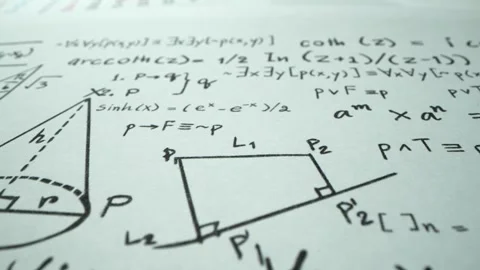 ~∀x∀y[p(x,y)] ≡ ∃x∃y[~p(x,y)] coth(z) = [
arccoth(z) = 1/2 ln (z+1)/(z-1))
1. p→q } q ~∃x∃y[p(x,y)] ≡ ∀x∀y[~p(x
√3
2. P p∨F ≡p p∨T
sinh(x) = (eˣ - e⁻ˣ)/2 aᵐ × aⁿ =
p→F≡~p p∧T ≡ p
h L₁ P₁ P₂
r P
L₂ P'₁ P'₂ [ ]n =